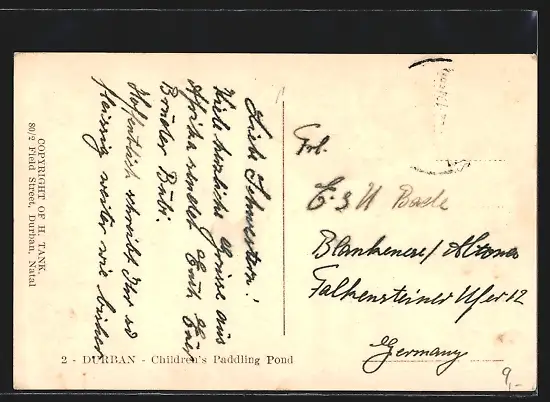 Liebe Schwestern!
Viele herzliche Grüsse aus
Afrika sendet Euch Euer
Bruder Bubi.
Hoffentlich schreibt Ihr so
fleissig weiter wie bisher
Frl.
E. & U Bade
Blankenese/Altona
Falkensteiner Ufer 12
Germany
COPYRIGHT OF H. TANK,
80/2 Field Street, Durban, Natal
2 - DURBAN - Children's Paddling Pond
9,-